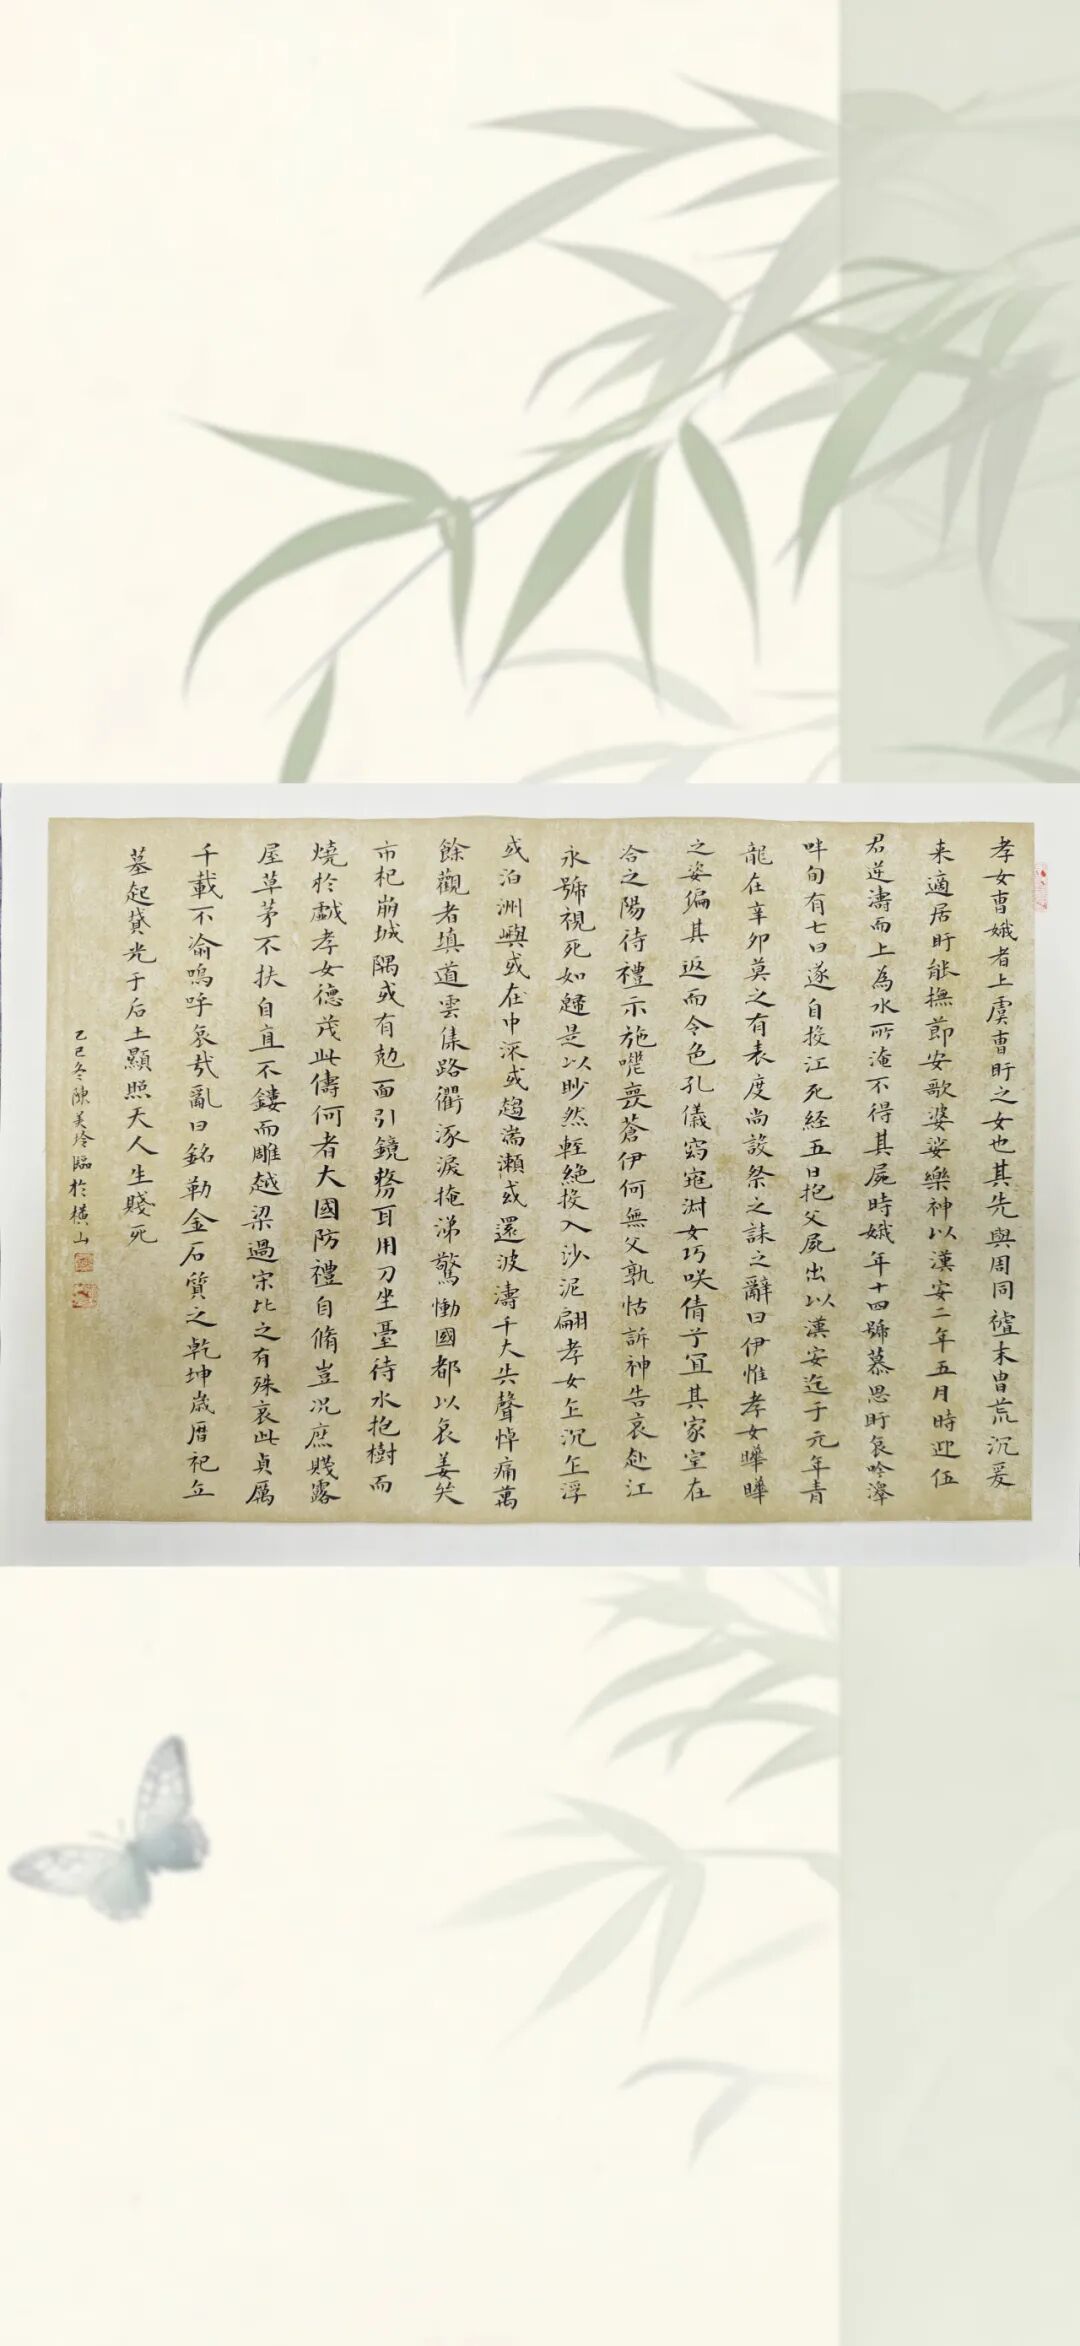 孝女曹娥者上虞曹盱之女也其先與周同禋末曺荒沉爰
来適居盱能撫節安歌婆娑樂神以漢安二年五月時迎伍
君逆濤而上為水所淹不得其屍時娥年十四號慕思盱哀吟澤
畔旬有七日遂自投江死経五日抱父屍出以漢安迄于元年青
龍在辛卯莫之有表度尚設祭之誄之辭曰伊惟孝女曄曄
之姿偏其返而令色孔儀窈窕淑女巧咲倩兮宜其家室在
合之陽待禮示施嗟喪蒼伊何無父孰怙訴神告哀赴江
永號視死如歸是以眇然輕絶投入沙泥翩孝女乍沉乍浮
或泊洲嶼或在中深或趨湍瀬或還波濤千夫失聲悼痛萬
餘觀者填道雲集路衢泳淚掩涕驚慟國都以哀姜哭
市杞崩城隅或有尅面引鏡剺耳用刀坐臺待水抱樹而
燒於戯孝女德茂此儔何者大國防禮自脩豈况庶賤露
屋草茅不扶自直不鏤而雕越梁過宋比之有殊哀此貞厲
千載不渝嗚呼哀哉亂曰銘勒金石質之乾坤歲曆祀立
墓起墳光于后土顯照天人生賤死
乙巳冬陳美玲臨於横山